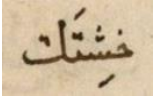 خِشتَك